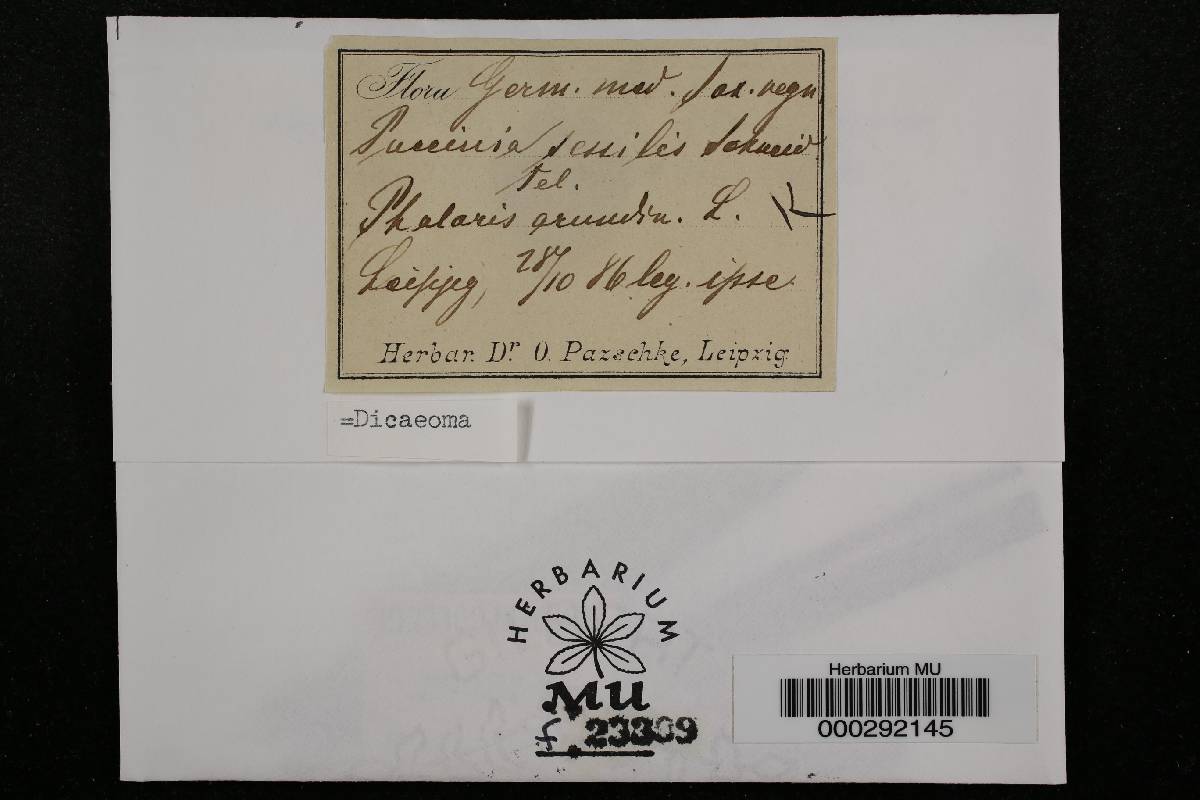 Flora Germ. med. Sax. regn
Puccinia sessilis Schneid
Tel.
Phalaris arundin. L.
Leipzig, 28/10 86 leg. ipse.
Herbar. Dr O. Pazschke, Leipzig
=Dicaeoma
HERBARIUM
MU
f 23309
Herbarium MU
000292145